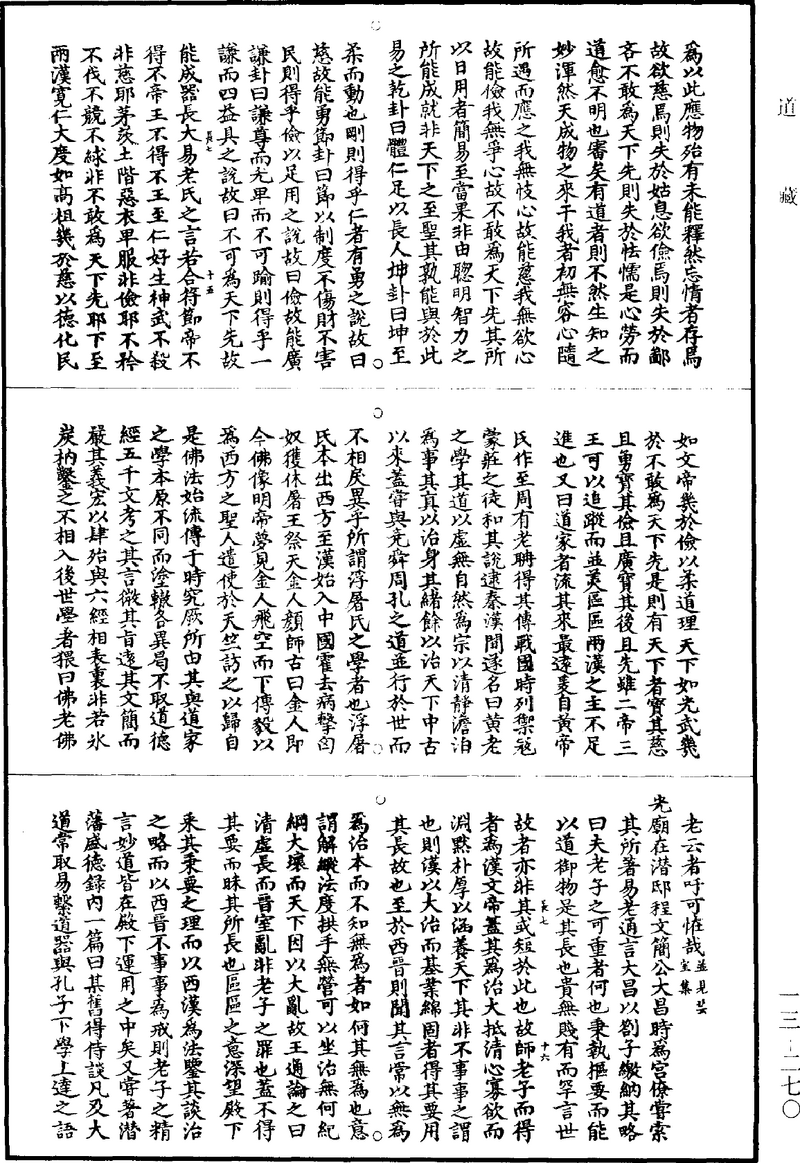 道藏
為以此應物殆有未能釋然忘情者存焉
故欲慈焉則失於姑息欲儉焉則失於鄙
吝不敢為天下先則失於怯懦是心勞而
道愈不明也審矣有道者則不然生知之
妙渾然天成物之來干我者初無容心隨
所遇而應之我無忮心故能慈我無欲心
故能儉我無爭心故不敢為天下先其所
以日用者簡易至當果非由聰明智力之
所能成就非天下之至聖其孰能與於此
易之乾卦曰體仁足以長人坤卦曰坤至
柔而動也剛則得乎仁者有勇之說故曰
慈故能勇節卦曰節以制度不傷財不害
民則得乎儉以足用之說故曰儉故能廣
謙卦曰謙尊而光卑而不可踰則得乎一
謙而四益具之說故曰不可為天下先故
能成器長大易老氏之言若合符節帝不
得不帝王不得不王至仁好生神武不殺
非慈耶茅茨土階惡衣卑服非儉耶不矜
不伐不競不絿非不敢為天下先耶下至
兩漢寬仁大度如高祖幾於慈以德化民
如文帝幾於儉以柔道理天下如光武幾
於不敢為天下先是則有天下者寶其慈
且勇寶其儉且廣寶其後且先雖二帝三
王可以追蹤而並美區區兩漢之主不足
進也又曰道家者流其來最遠爰自黃帝
氏作至周有老聃得其傳戰國時列禦寇
蒙莊之徒和其說逮秦漢間遂名曰黃老
之學其道以虛無自然為宗以清靜澹泊
為事其真以治身其緒餘以治天下中古
以來蓋嘗與堯舜周孔之道並行於世而
不相戾異乎所謂浮屠氏之學者也浮屠
氏本出西方至漢始入中國霍去病擊匈
奴獲休屠王祭天金人顏師古曰金人即
今佛像明帝夢見金人飛空而下傅毅以
為西方之聖人遣使於天竺訪之以歸自
是佛法始流傳于時究厥所由其與道家
之學本原不同而塗轍各異局不取道德
經五千文考之其言微其旨遠其文簡而
嚴其義宏以肆殆與六經相表裏非若氷
炭枘鑿之不相入後世學者猥曰佛老佛
老云者吁可怪哉並見瑩室集
光廟在潛邸程文簡公大昌時為宮僚嘗索
其所著易老通言大昌以劄子繳納其略
曰夫老子之可重者何也秉執樞要而能
以道御物是其長也貴無賤有而罕言世
故者亦非其或短於此也故師老子而得
者為漢文帝蓋其為治大抵清心寡欲而
淵默朴厚以涵養天下其非不事事之謂
也則漢以大治而基業綿固者得其要用
其長故也至於西晉則聞其言常以無為
為治本而不知無為者如何其無為也意
謂解縱法度拱手無營可以坐治無何紀
綱大壞而天下因以大亂故王通論之曰
清虛長而晉室亂非老子之罪也蓋不得
其要而昧其所長也區區之意深望殿下
采其秉要之理而以西漢為法鑒其談治
之略而以西晉不事事為戒則老子之精
言妙道皆在殿下運用之中矣又嘗著潛
藩盛德錄內一篇曰某舊得侍談凡及大
道常取易繫道器與孔子下學上達之語
長七
十五
長七
十六
一三－二七〇